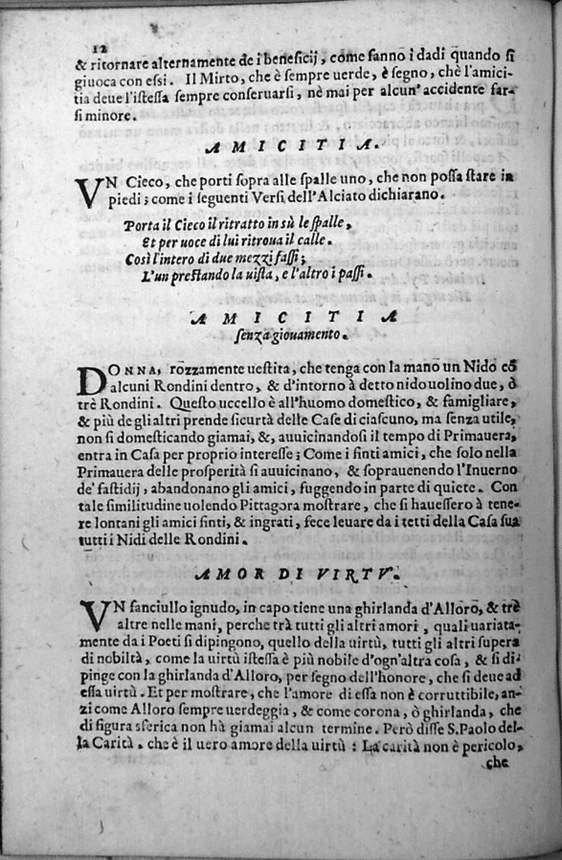 12
& ritornare alternamente de i beneficij, come fanno i dadi quando ſi
giuoca con eſsi. Il Mirto, che è ſempre uerde, è ſegno, chè l'amici-
tia deue l'iſteſſa ſempre conſeruarſi, nè mai per alcun' accidente far-
ſi minore.
AMICITIA.
VN Cieco, che porti ſopra alle ſpalle uno, che non poſſa ſtare in
piedi; come i ſeguenti Verſi dell'Alciato dichiarano.
Porta il Cieco il ritratto in sù le ſpalle,
Et per uoce di lui ritroua il calle.
Così l'intero di due mezzi faſsi;
L'un preſtando la uiſta, e l'altro i paſsi.
AMICITIA
ſenza giouamento.
DONNA, rozzamente ueſtita, che tenga con la mano un Nido cõ
alcuni Rondini dentro, & d'intorno à detto nido uolino due, ò
trè Rondini. Queſto uccello è all'huomo domeſtico, & famigliare,
& più de gli altri prende ſicurtà delle Caſe di ciaſcuno, ma ſenza utile,
non ſi domeſticando giamai, &, auuicinandoſi il tempo di Primauera,
entra in Caſa per proprio intereſſe; Come i finti amici, che ſolo nella
Primauera delle proſperità ſi auuicinano, & ſoprauenendo l'Inuerno
de' faſtidij, abandonano gli amici, fuggendo in parte di quiete. Con
tale ſimilitudine uolendo Pittagora moſtrare, che ſi haueſſero à tene-
re lontani gli amici finti, & ingrati, fece leuare da i tetti della Caſa ſua
tutti i Nidi delle Rondini.
AMOR DI VIRTV.
VN fanciullo ignudo, in capo tiene una ghirlanda d'Alloro, & trè
altre nelle mani, perche trà tutti gli altri amori, quali uariata-
mente da i Poeti ſi dipingono, quello della uirtù, tutti gli altri ſupera
di nobiltà, come la uirtù iſteſſa è più nobile d'ogn'altra coſa, & ſi di-
pinge con la ghirlanda d'Alloro, per ſegno dell'honore, che ſi deue ad
eſſa uirtù. Et per moſtrare, che l'amore di eſſa non è corruttibile, an-
zi come Alloro ſempre uerdeggia, & come corona, ò ghirlanda, che
di figura sferica non hà giamai alcun termine. Però diſſe S. Paolo del-
la Carità, che è il uero amore della uirtù: La carità non è pericolo,
che